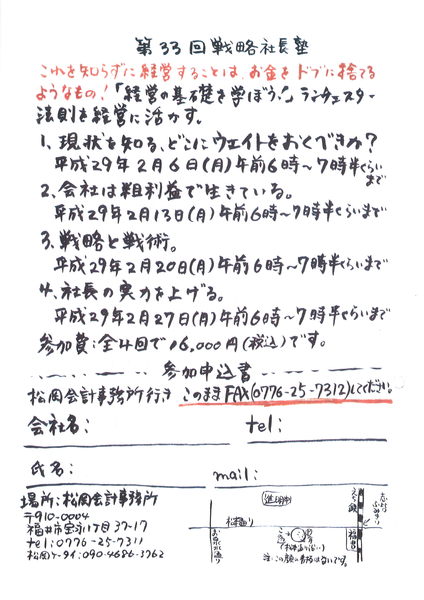 第33回戦略社長塾
これを知らずに経営することは、お金をドブに捨てる
ようなもの!「経営の基礎を学ぼう!」ランチェスター
法則を経営に活かす。
1、現状を知る、どこにウェイトをおくべきか?
平成29年2月6日(月)午前6時〜7時半くらいまで
2、会社は粗利益で生きている。
平成29年2月13日(月)午前6時〜7時半くらいまで
3、戦略と戦術。
平成29年2月20日(月)午前6時〜7時半くらいまで
4、社長の実力を上げる。
平成29年2月27日(月)午前6時〜7時半くらいまで
参加費:全4回で16,000円(税込)です。
参加申込書
松岡会計事務所行き このままFAX(0776-25-7312)してください。
会社名: tel:
氏名: mail:
場所:松岡会計事務所
〒910-0004
福井市宝永1丁目37-17
tel:0776-25-7311
松岡ケータイ:090-4686-3762
松本通り